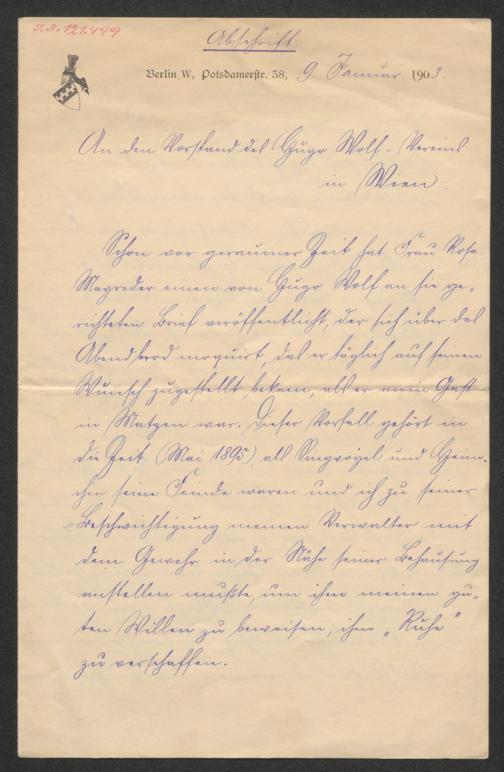 J.N. 121.499
Abschrift
Berlin W, Potsdamerstr. 38, 9. Januar 1903.
An den Vorstand des Hugo Wolf-Vereins
in Wien.
Schon vor geraumer Zeit hat Frau Rosa
Mayreder einen von Hugo Wolf an sie ge-
richteten Brief veröffentlicht, der sich über das
Abendbrod moquirt, das er täglich auf seinen
Wunsch zugestellt bekam, als er mein Gast
in Matzen war. Dieser Vorfall gehört in
die Zeit (Mai 1895) als Singvögel und Heim-
chen seine Feinde waren und ich zu seiner
Beschwichtigung meinen Verwalter mit
dem Gewehr in der Nähe seiner Behausung
anstellen mußte, um ihm meinen gu-
ten Willen zu beweisen, ihm „Ruhe"
zu verschaffen.